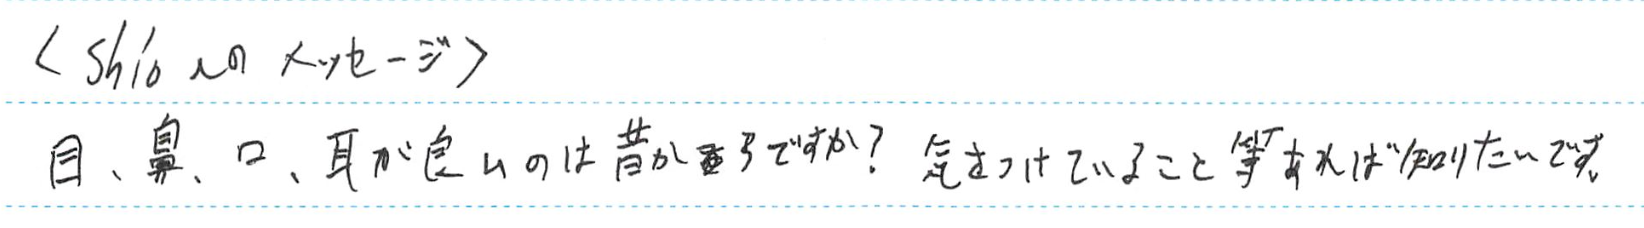 〈Shioへのメッセージ〉
目、鼻、口、耳が良いのは昔からですか？気をつけていること等あれば知りたいです。